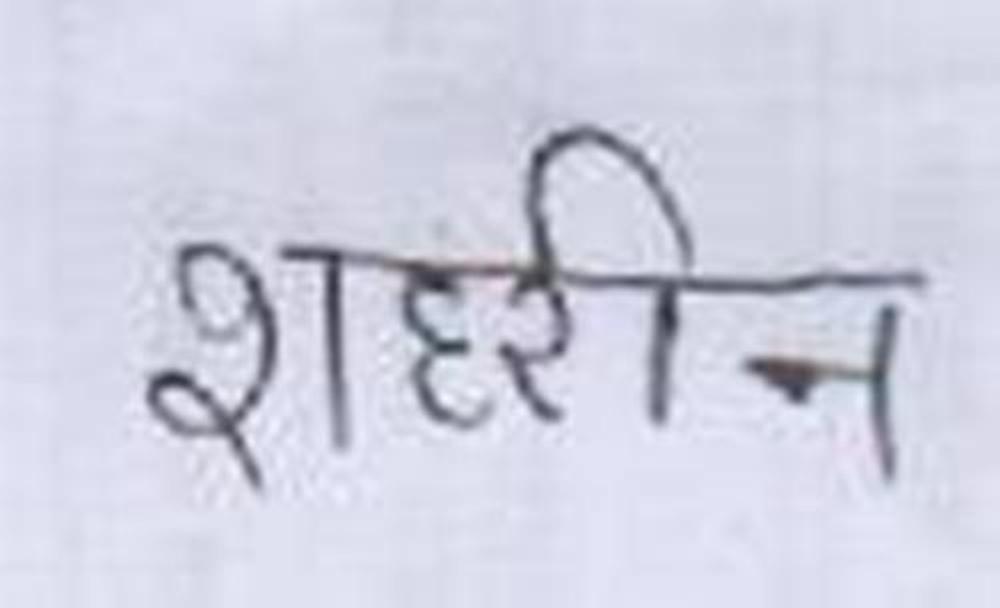 शहरीन